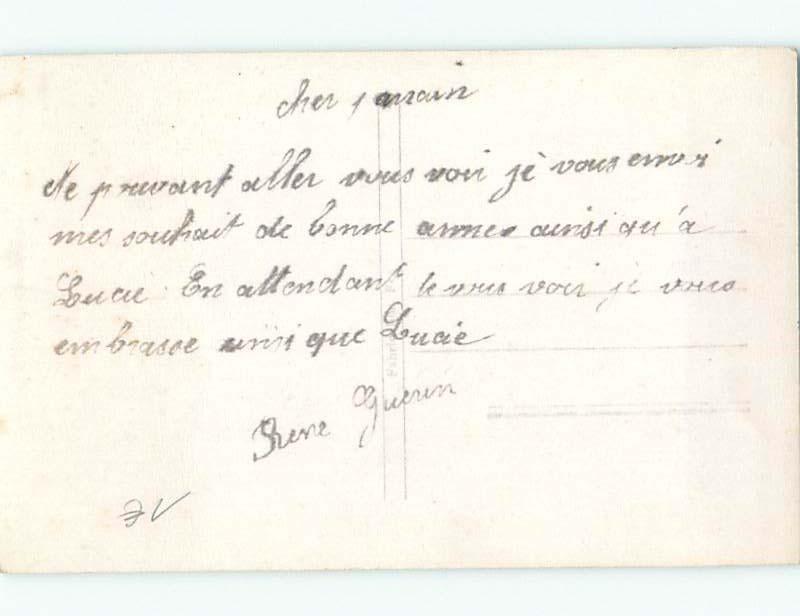 cher parrain
Ne pouvant aller vous voir je vous envoi
mes souhait de bonne anne ainsi qu'a
Lucie En attendant de vous voir je vous
embrasse ainsi que Lucie
Rene Guerin